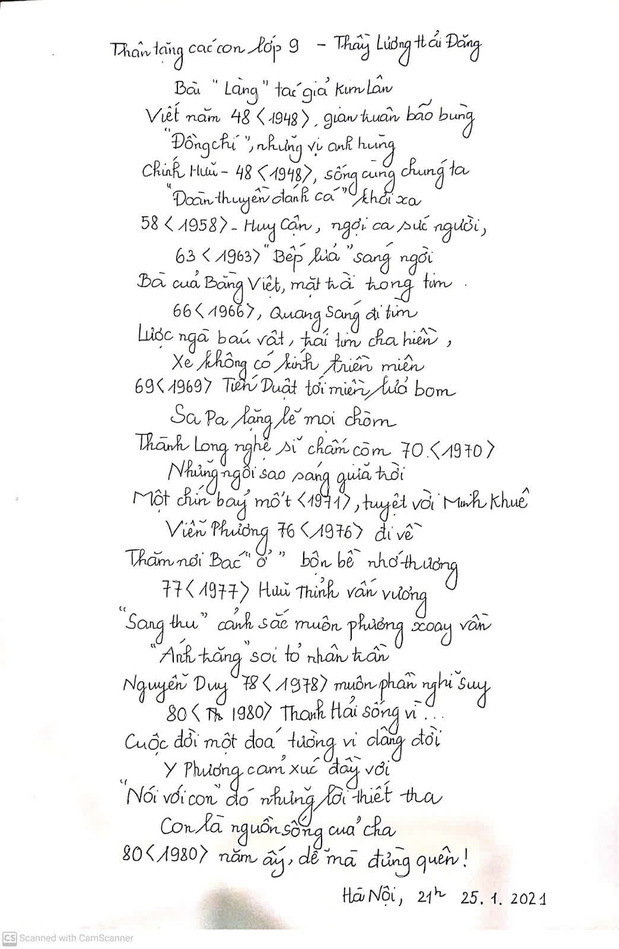 Thân tặng các con lớp 9 - Thầy Lương Hải Đăng
Bài "Làng" tác giả Kim Lân
Viết năm 48 <1948>, gian truân bão bùng
"Đồng chí", những vị anh hùng
Chính Hữu - 48 <1948>, sống cùng chúng ta
"Đoàn thuyền đánh cá" khơi xa
58 <1958> - Huy Cận, ngợi ca sức người,
63 <1963> "Bếp lửa" sáng ngời
Bà của Bằng Việt, mặt trời trong tim.
66 <1966>, Quang Sáng đi tìm
Lược ngà báu vật, trái tim cha hiền,
Xe không có kính triền miên
69 <1969> Tiến Duật tới miền lửa bom
Sa Pa lặng lẽ mọi chòm
Thành Long nghệ sĩ chấm còm 70. <1970>
Những ngôi sao sáng giữa trời
Một chín bảy mốt <1971>, tuyệt vời Minh Khuê
Viễn Phương 76 <1976> đi về
Thăm nơi Bác "ở" bộn bề nhớ thương
77 <1977> Hữu Thỉnh vấn vương
"Sang thu" cảnh sắc muôn phương xoay vần
"Ánh trăng" soi tỏ nhân trần
Nguyễn Duy 78 <1978> muôn phần nghĩ suy
80 < 1980> Thanh Hải sống vì...
Cuộc đời một đoá tường vi dâng đời
Y Phương cảm xúc đầy vơi
"Nói với con" đó những lời thiết tha
Con là nguồn sống của cha
80 <1980> năm ấy, dễ mà đừng quên!
Hà Nội, 21h 25.1.2021
CS Scanned with CamScanner